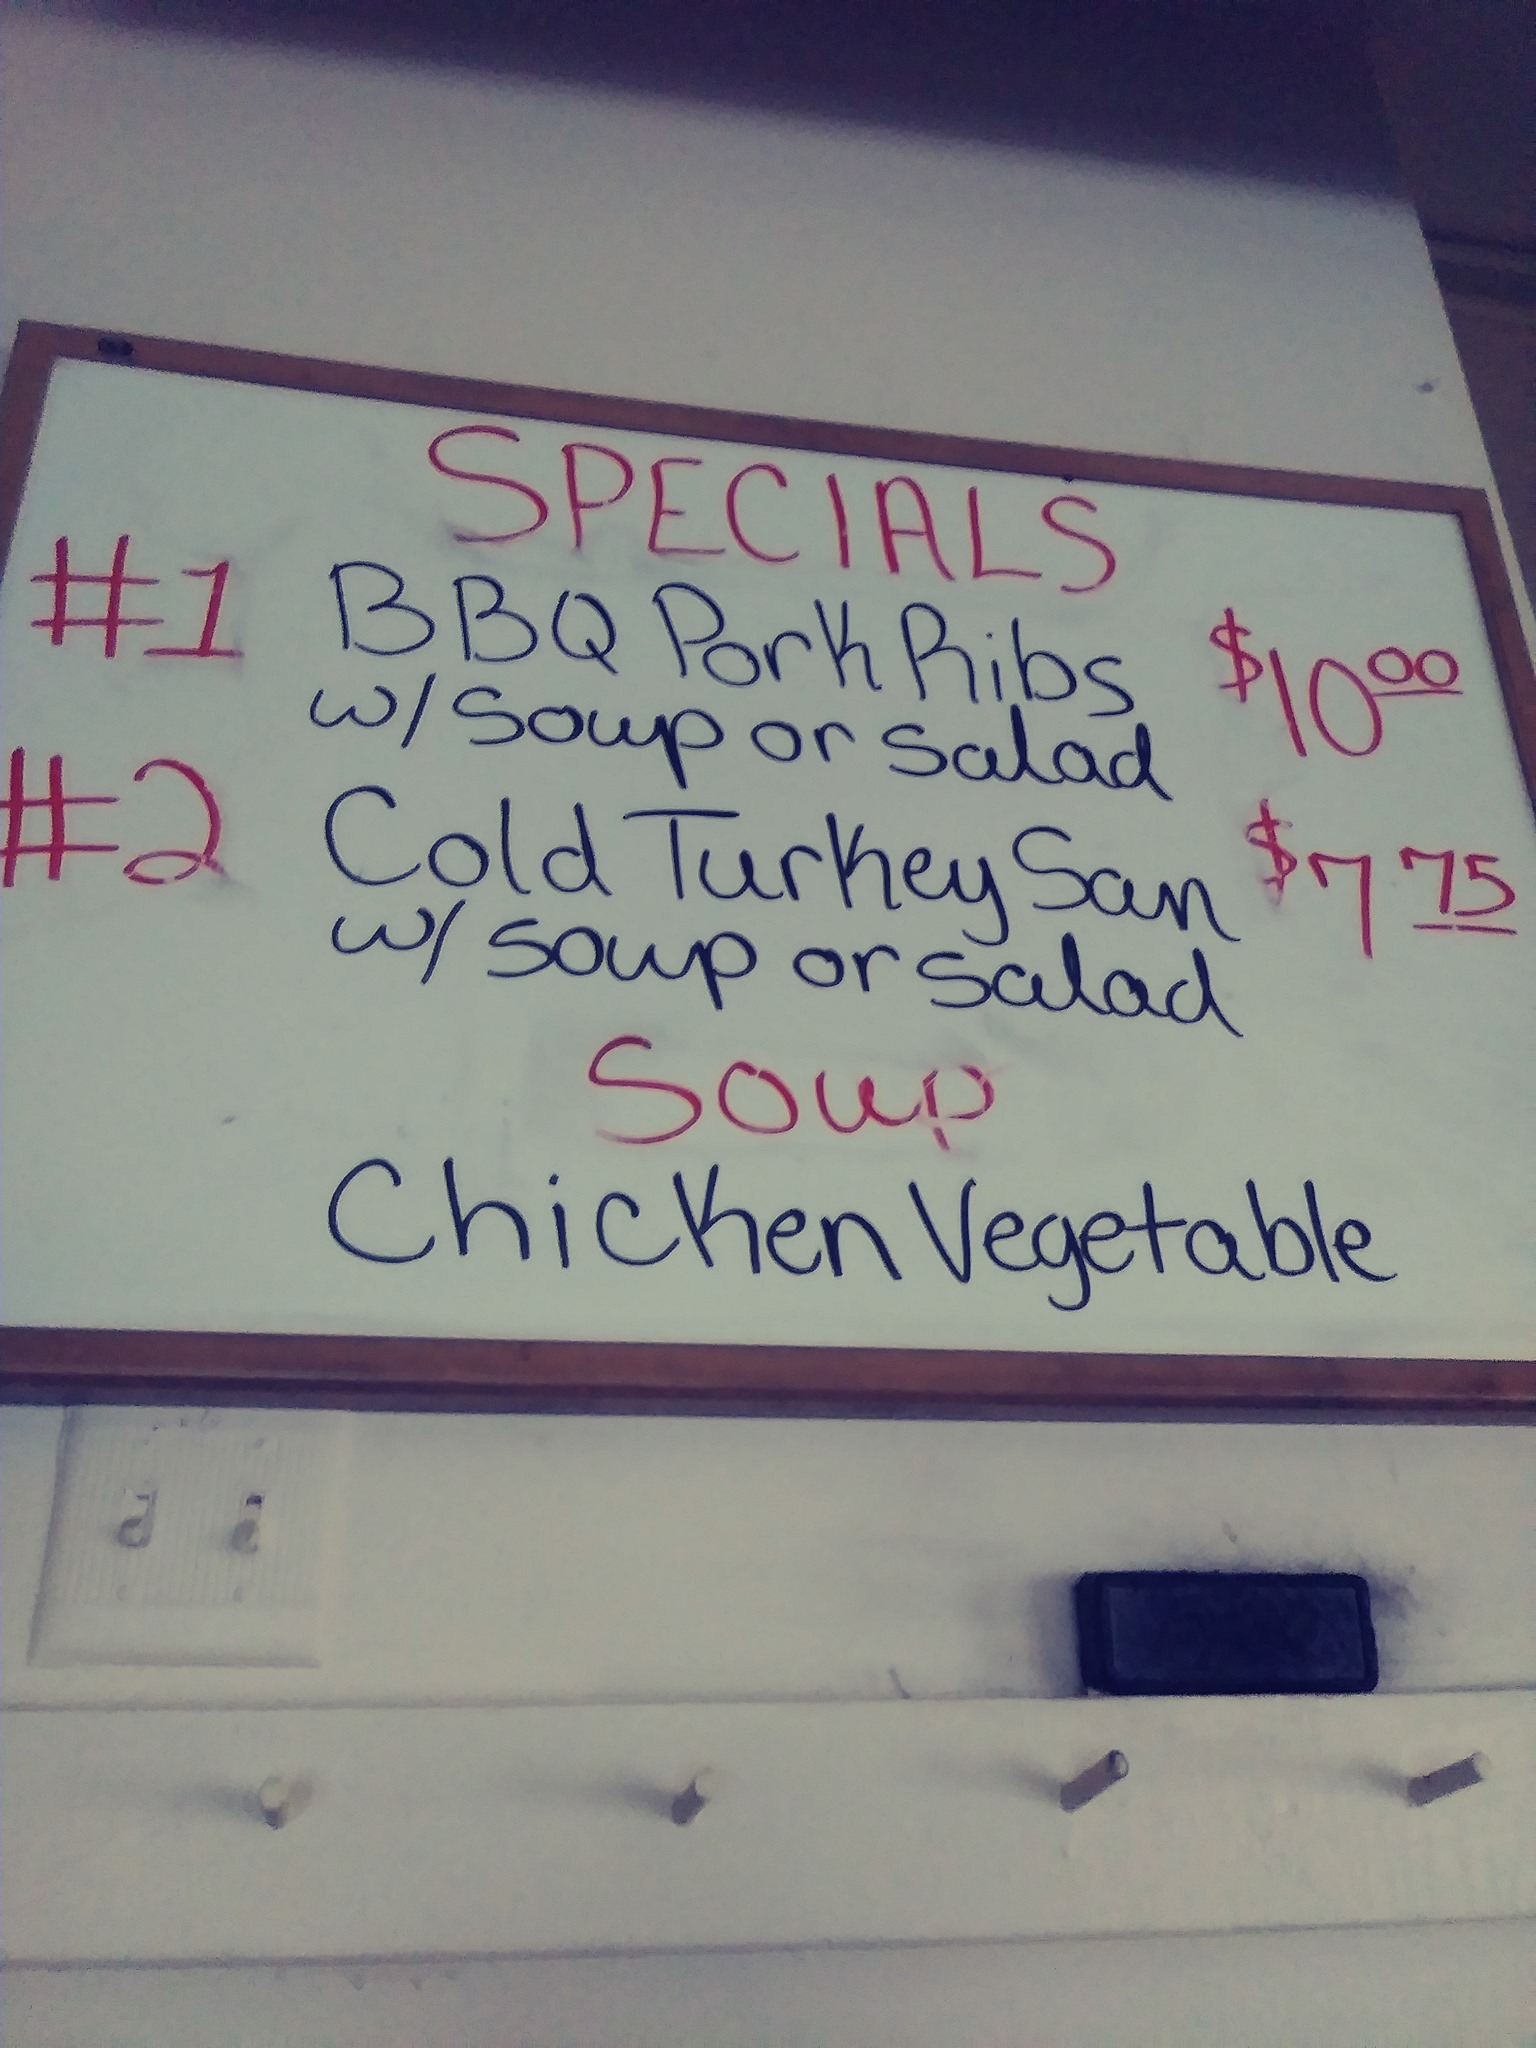 SPECIALS
#1 BBQ Pork Ribs $10.00
w/ Soup or Salad
#2 Cold Turkey San $7.75
w/ Soup or Salad
Soup
Chicken Vegetable